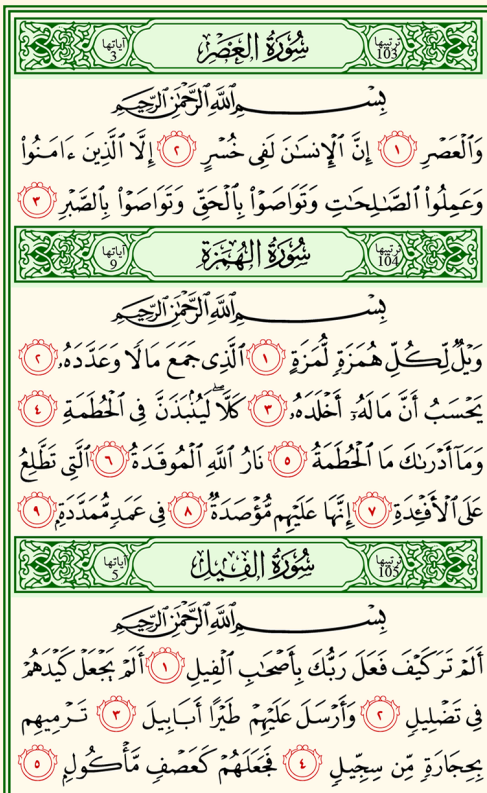 ترتيبها 103 سُورَةُ العَصْرِ آياتها 3
بِسْمِ ٱللَّهِ ٱلرَّحْمَٰنِ ٱلرَّحِيمِ
وَٱلْعَصْرِ ١ إِنَّ ٱلْإِنسَٰنَ لَفِى خُسْرٍ ٢ إِلَّا ٱلَّذِينَ ءَامَنُوا۟
وَعَمِلُوا۟ ٱلصَّٰلِحَٰتِ وَتَوَاصَوْا۟ بِٱلْحَقِّ وَتَوَاصَوْا۟ بِٱلصَّبْرِ ٣
ترتيبها 104 سُورَةُ الهُمَزَةِ آياتها 9
بِسْمِ ٱللَّهِ ٱلرَّحْمَٰنِ ٱلرَّحِيمِ
وَيْلٌ لِّكُلِّ هُمَزَةٍ لُّمَزَةٍ ١ ٱلَّذِى جَمَعَ مَالًا وَعَدَّدَهُۥ ٢
يَحْسَبُ أَنَّ مَالَهُۥٓ أَخْلَدَهُۥ ٣ كَلَّا ۖ لَيُنۢبَذَنَّ فِى ٱلْحُطَمَةِ ٤
وَمَآ أَدْرَىٰكَ مَا ٱلْحُطَمَةُ ٥ نَارُ ٱللَّهِ ٱلْمُوقَدَةُ ٦ ٱلَّتِى تَطَّلِعُ
عَلَى ٱلْأَفْـِٔدَةِ ٧ إِنَّهَا عَلَيْهِم مُّؤْصَدَةٌ ٨ فِى عَمَدٍ مُّمَدَّدَةٍۭ ٩
ترتيبها 105 سُورَةُ الفِيلِ آياتها 5
بِسْمِ ٱللَّهِ ٱلرَّحْمَٰنِ ٱلرَّحِيمِ
أَلَمْ تَرَ كَيْفَ فَعَلَ رَبُّكَ بِأَصْحَٰبِ ٱلْفِيلِ ١ أَلَمْ يَجْعَلْ كَيْدَهُمْ
فِى تَضْلِيلٍ ٢ وَأَرْسَلَ عَلَيْهِمْ طَيْرًا أَبَابِيلَ ٣ تَرْمِيهِم
بِحِجَارَةٍ مِّن سِجِّيلٍ ٤ فَجَعَلَهُمْ كَعَصْفٍ مَّأْكُولٍۭ ٥